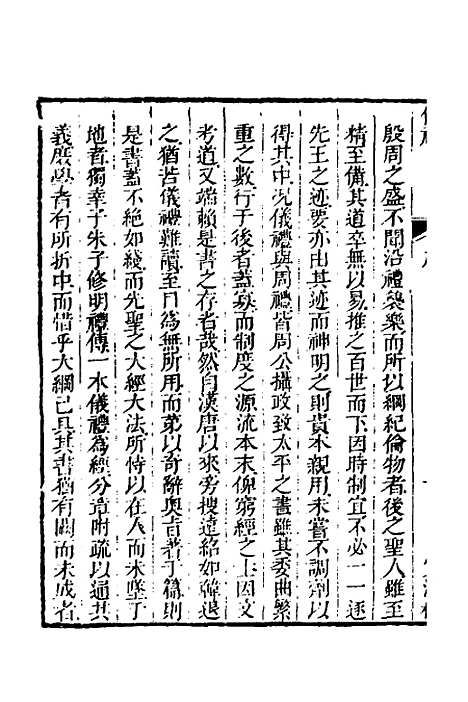 殷周之盛不聞沿禮襲樂而所以綱紀倫物者後之聖人雖至
精至備其道卒無以易推之百世而下因時制宜不必一一逐
先王之跡要亦由其迹而神明之則貴本親用未嘗不調劑以
得其中况儀禮與周禮皆周公攝政致太平之書雖其委曲繁
重之數行于後者蓋尠而制度之源流本末俾窮經之士因文
考道又端賴是書之存者哉然自漢唐以來旁搜遠紹如韓退
之猶苦儀禮難讀至目為無所用而第以奇辭奧旨著于篇則
是書蓋不絶如綫而先聖之大經大法所恃以在人而未墜于
地者獨幸子朱子修明禮傳一本儀禮為經分章附疏以通其
義庶學者有所折中而惜乎大綱已具其書猶有闕而未成者